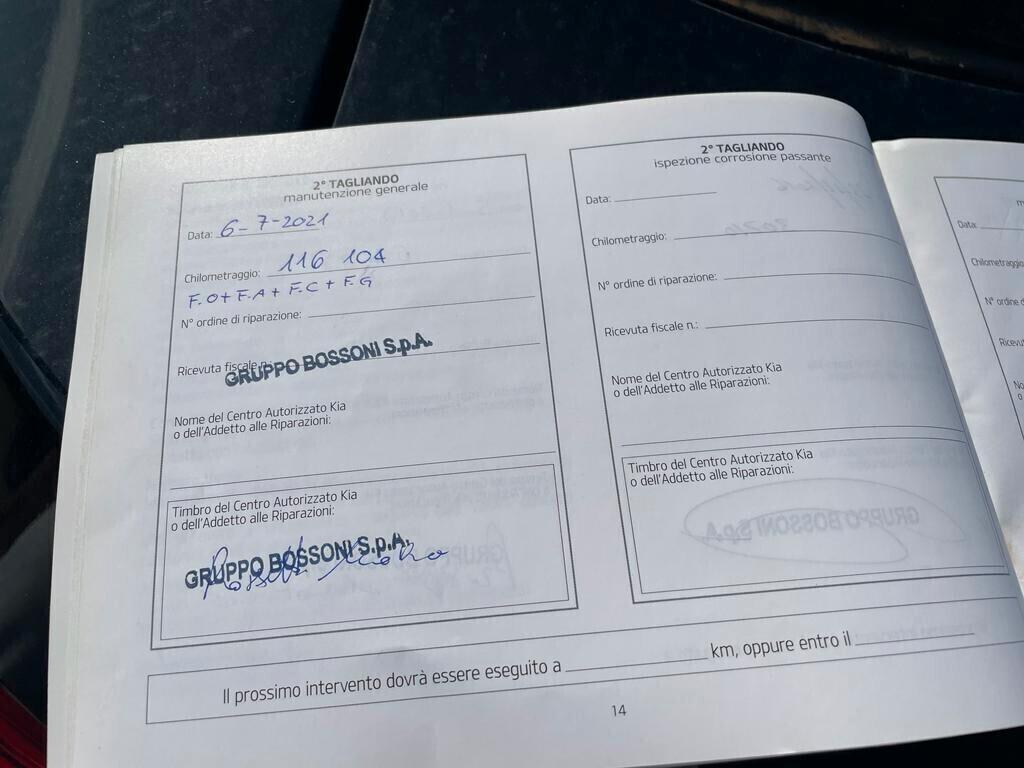 2° TAGLIANDO
manutenzione generale
Data: 6-7-2021
Chilometraggio: 116 104
F.O + F.A + F.C + F.G
N° ordine di riparazione:
Ricevuta fiscale n.:
GRUPPO BOSSONI S.p.A.
Nome del Centro Autorizzato Kia
o dell'Addetto alle Riparazioni:
Timbro del Centro Autorizzato Kia
o dell'Addetto alle Riparazioni:
GRUPPO BOSSONI S.p.A.
2° TAGLIANDO
ispezione corrosione passante
Data:
Chilometraggio:
N° ordine di riparazione:
Ricevuta fiscale n.:
Nome del Centro Autorizzato Kia
o dell'Addetto alle Riparazioni:
Timbro del Centro Autorizzato Kia
o dell'Addetto alle Riparazioni:
Il prossimo intervento dovrà essere eseguito a km, oppure entro il
14
Data:
Chilometraggio
N° ordine d
Ricevut
No
o